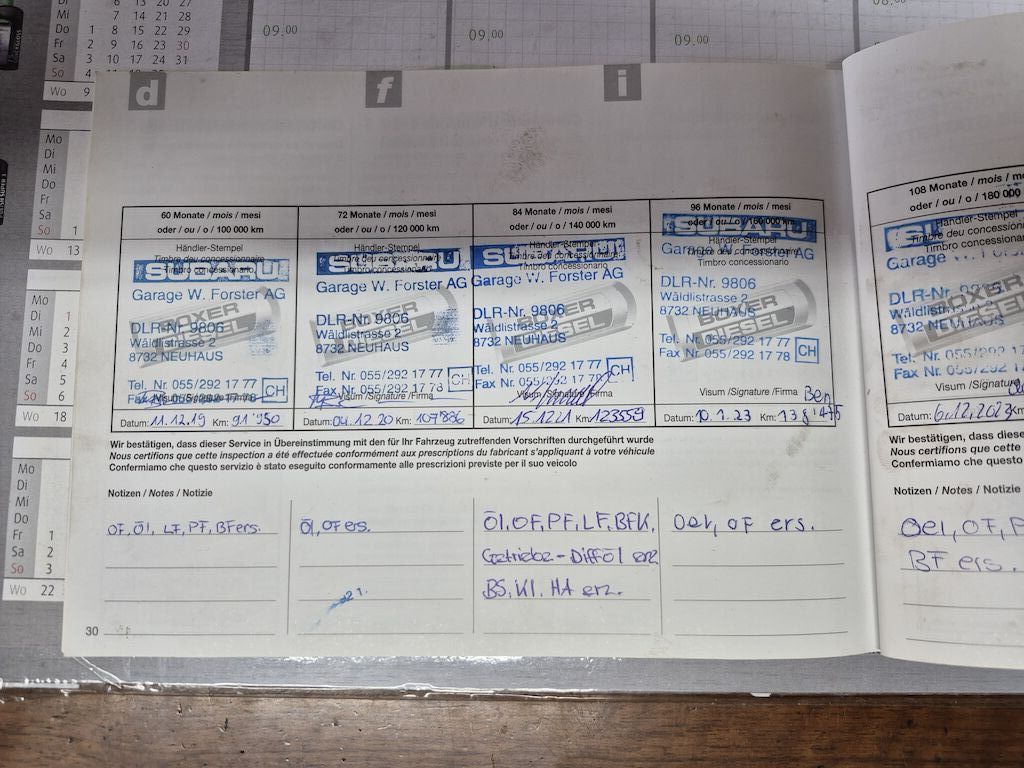 6 13 20 27
Mi 7 14 21 28
Do 1 8 15 22 29
Fr 2 9 16 23 30
Sa 3 10 17 24 31
So 4
Wo 9
09.00 09.00 09.00
d f i
Mo
Di
Mi
Do
Fr
Sa
So 1
Wo 13
Mo
Di 1
Mi 2
Do 3
Fr 4
Sa 5
So 6
Wo 18
Mo
Di
Mi
Do
Fr 1
Sa 2
So 3
Wo 22
60 Monate / mois / mesi
oder / ou / o / 100 000 km
Händler-Stempel
Timbre du concessionnaire
Timbro concessionario
SUBARU
Garage W. Forster AG
BOXER
DIESEL
DLR-Nr. 9806
Wäldlistrasse 2
8732 NEUHAUS
Tel. Nr. 055/292 17 77
Fax Nr. 055/292 17 78
CH
Visum /Signature /Firma
Datum: 11.12.19 Km: 91'950
72 Monate / mois / mesi
oder / ou / o / 120 000 km
Händler-Stempel
Timbre du concessionnaire
Timbro concessionario
SUBARU
Garage W. Forster AG
BOXER
DIESEL
DLR-Nr. 9806
Wäldlistrasse 2
8732 NEUHAUS
Tel. Nr. 055/292 17 77
Fax Nr. 055/292 17 78
CH
Visum /Signature /Firma
Datum: 04.12.20 Km: 107'886
84 Monate / mois / mesi
oder / ou / o / 140 000 km
Händler-Stempel
Timbre du concessionnaire
Timbro concessionario
SUBARU
Garage W. Forster AG
BOXER
DIESEL
DLR-Nr. 9806
Wäldlistrasse 2
8732 NEUHAUS
Tel. Nr. 055/292 17 77
Fax Nr. 055/292 17 78
CH
Visum /Signature /Firma
Datum: 15.12.21 Km: 123559
96 Monate / mois / mesi
oder / ou / o / 160 000 km
Händler-Stempel
Timbre du concessionnaire
Timbro concessionario
SUBARU
Garage W. Forster AG
BOXER
DIESEL
DLR-Nr. 9806
Wäldlistrasse 2
8732 NEUHAUS
Tel. Nr. 055/292 17 77
Fax Nr. 055/292 17 78
CH
Visum /Signature /Firma
Datum: 10.1.23 Km:
108 Monate / mois / m
oder / ou / o / 180 000
Händler-Stempel
Timbre du concessionn
Timbro concessionario
Garage
BOXER
DIESEL
DLR-Nr.
Wäldlistrasse
8732 NEUHAUS
Tel. Nr. 055/292 17
Fax Nr. 055/292 17
Visum /Signature
Datum: 6.12.2023 Km:
Wir bestätigen, dass dieser Service in Übereinstimmung mit den für Ihr Fahrzeug zutreffenden Vorschriften durchgeführt wurde
Nous certifions que cette inspection a été effectuée conformément aux prescriptions du fabricant s'appliquant à votre véhicule
Confermiamo che questo servizio è stato eseguito conformamente alle prescrizioni previste per il suo veicolo
Wir bestätigen, dass diese
Nous certifions que cette
Confermiamo che questo
Notizen / Notes / Notizie
ÖF, Öl, LF, PF, BF ers.
Öl, OF ers.
Öl, OF, PF, LF, BFK,
Getriebe-Difföl erz
BS, Kl. HA erz.
Oel, OF ers.
Notizen / Notes / Notizie
Oel, OF, P
BF ers.
30